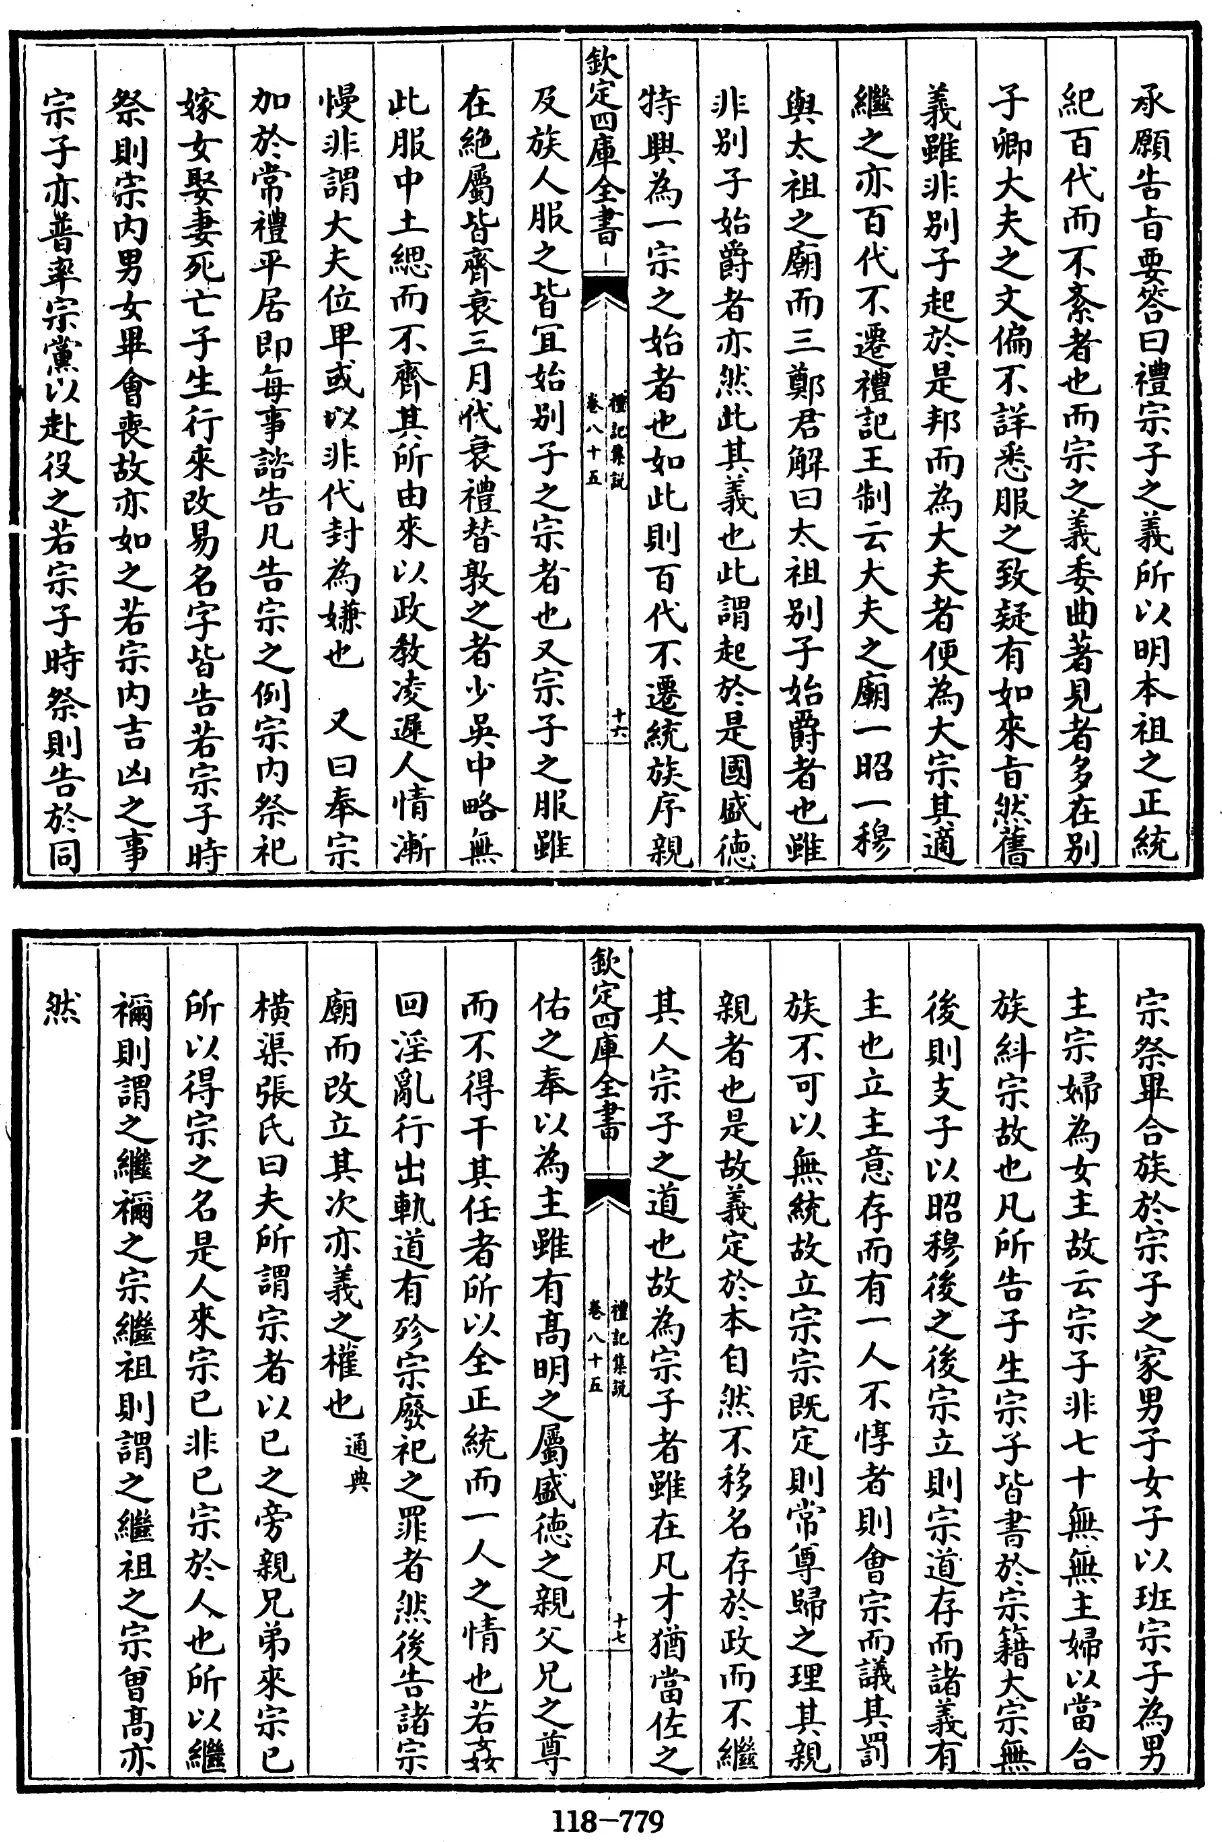 承願告旨要答曰禮宗子之義所以明本祖之正統
紀百代而不紊者也而宗之義委曲著見者多在別
子卿大夫之文偏不詳悉服之致疑有如來旨然舊
義雖非別子起於是邦而為大夫者便為大宗其適
繼之亦百代不遷禮記王制云大夫之廟一昭一穆
與太祖之廟而三鄭君解曰太祖別子始爵者也雖
非別子始爵者亦然此其義也此謂起於是國盛徳
特興為一宗之始者也如此則百代不遷統族序親
欽定四庫全書
禮記集説
卷八十五
十六
及族人服之皆宜始別子之宗者也又宗子之服雖
在絶屬皆齊衰三月代衰禮替敦之者少吳中略無
此服中土緦而不齊其所由來以政教凌遲人情漸
慢非謂大夫位卑或以非代封為嫌也　又曰奉宗
加於常禮平居即每事諮告凡告宗之例宗内祭祀
嫁女娶妻死亡子生行來改易名字皆告若宗子時
祭則宗内男女畢會喪故亦如之若宗内吉凶之事
宗子亦普率宗黨以赴役之若宗子時祭則告於同
宗祭畢合族於宗子之家男子女子以班宗子為男
主宗婦為女主故云宗子非七十無無主婦以當合
族糾宗故也凡所告子生宗子皆書於宗籍大宗無
後則支子以昭穆後之後宗立則宗道存而諸義有
主也立主意存而有一人不惇者則會宗而議其罰
族不可以無統故立宗宗既定則常尊歸之理其親
親者也是故義定於本自然不移名存於政而不繼
其人宗子之道也故為宗子者雖在凡才猶當佐之
欽定四庫全書
禮記集説
卷八十五
十七
佑之奉以為主雖有髙明之屬盛徳之親父兄之尊
而不得干其任者所以全正統而一人之情也若姦
回淫亂行出軌道有殄宗廢祀之罪者然後告諸宗
廟而改立其次亦義之權也通典
横渠張氏曰夫所謂宗者以已之旁親兄弟來宗已
所以得宗之名是人來宗已非已宗於人也所以繼
禰則謂之繼禰之宗繼祖則謂之繼祖之宗曾髙亦
然
118-779